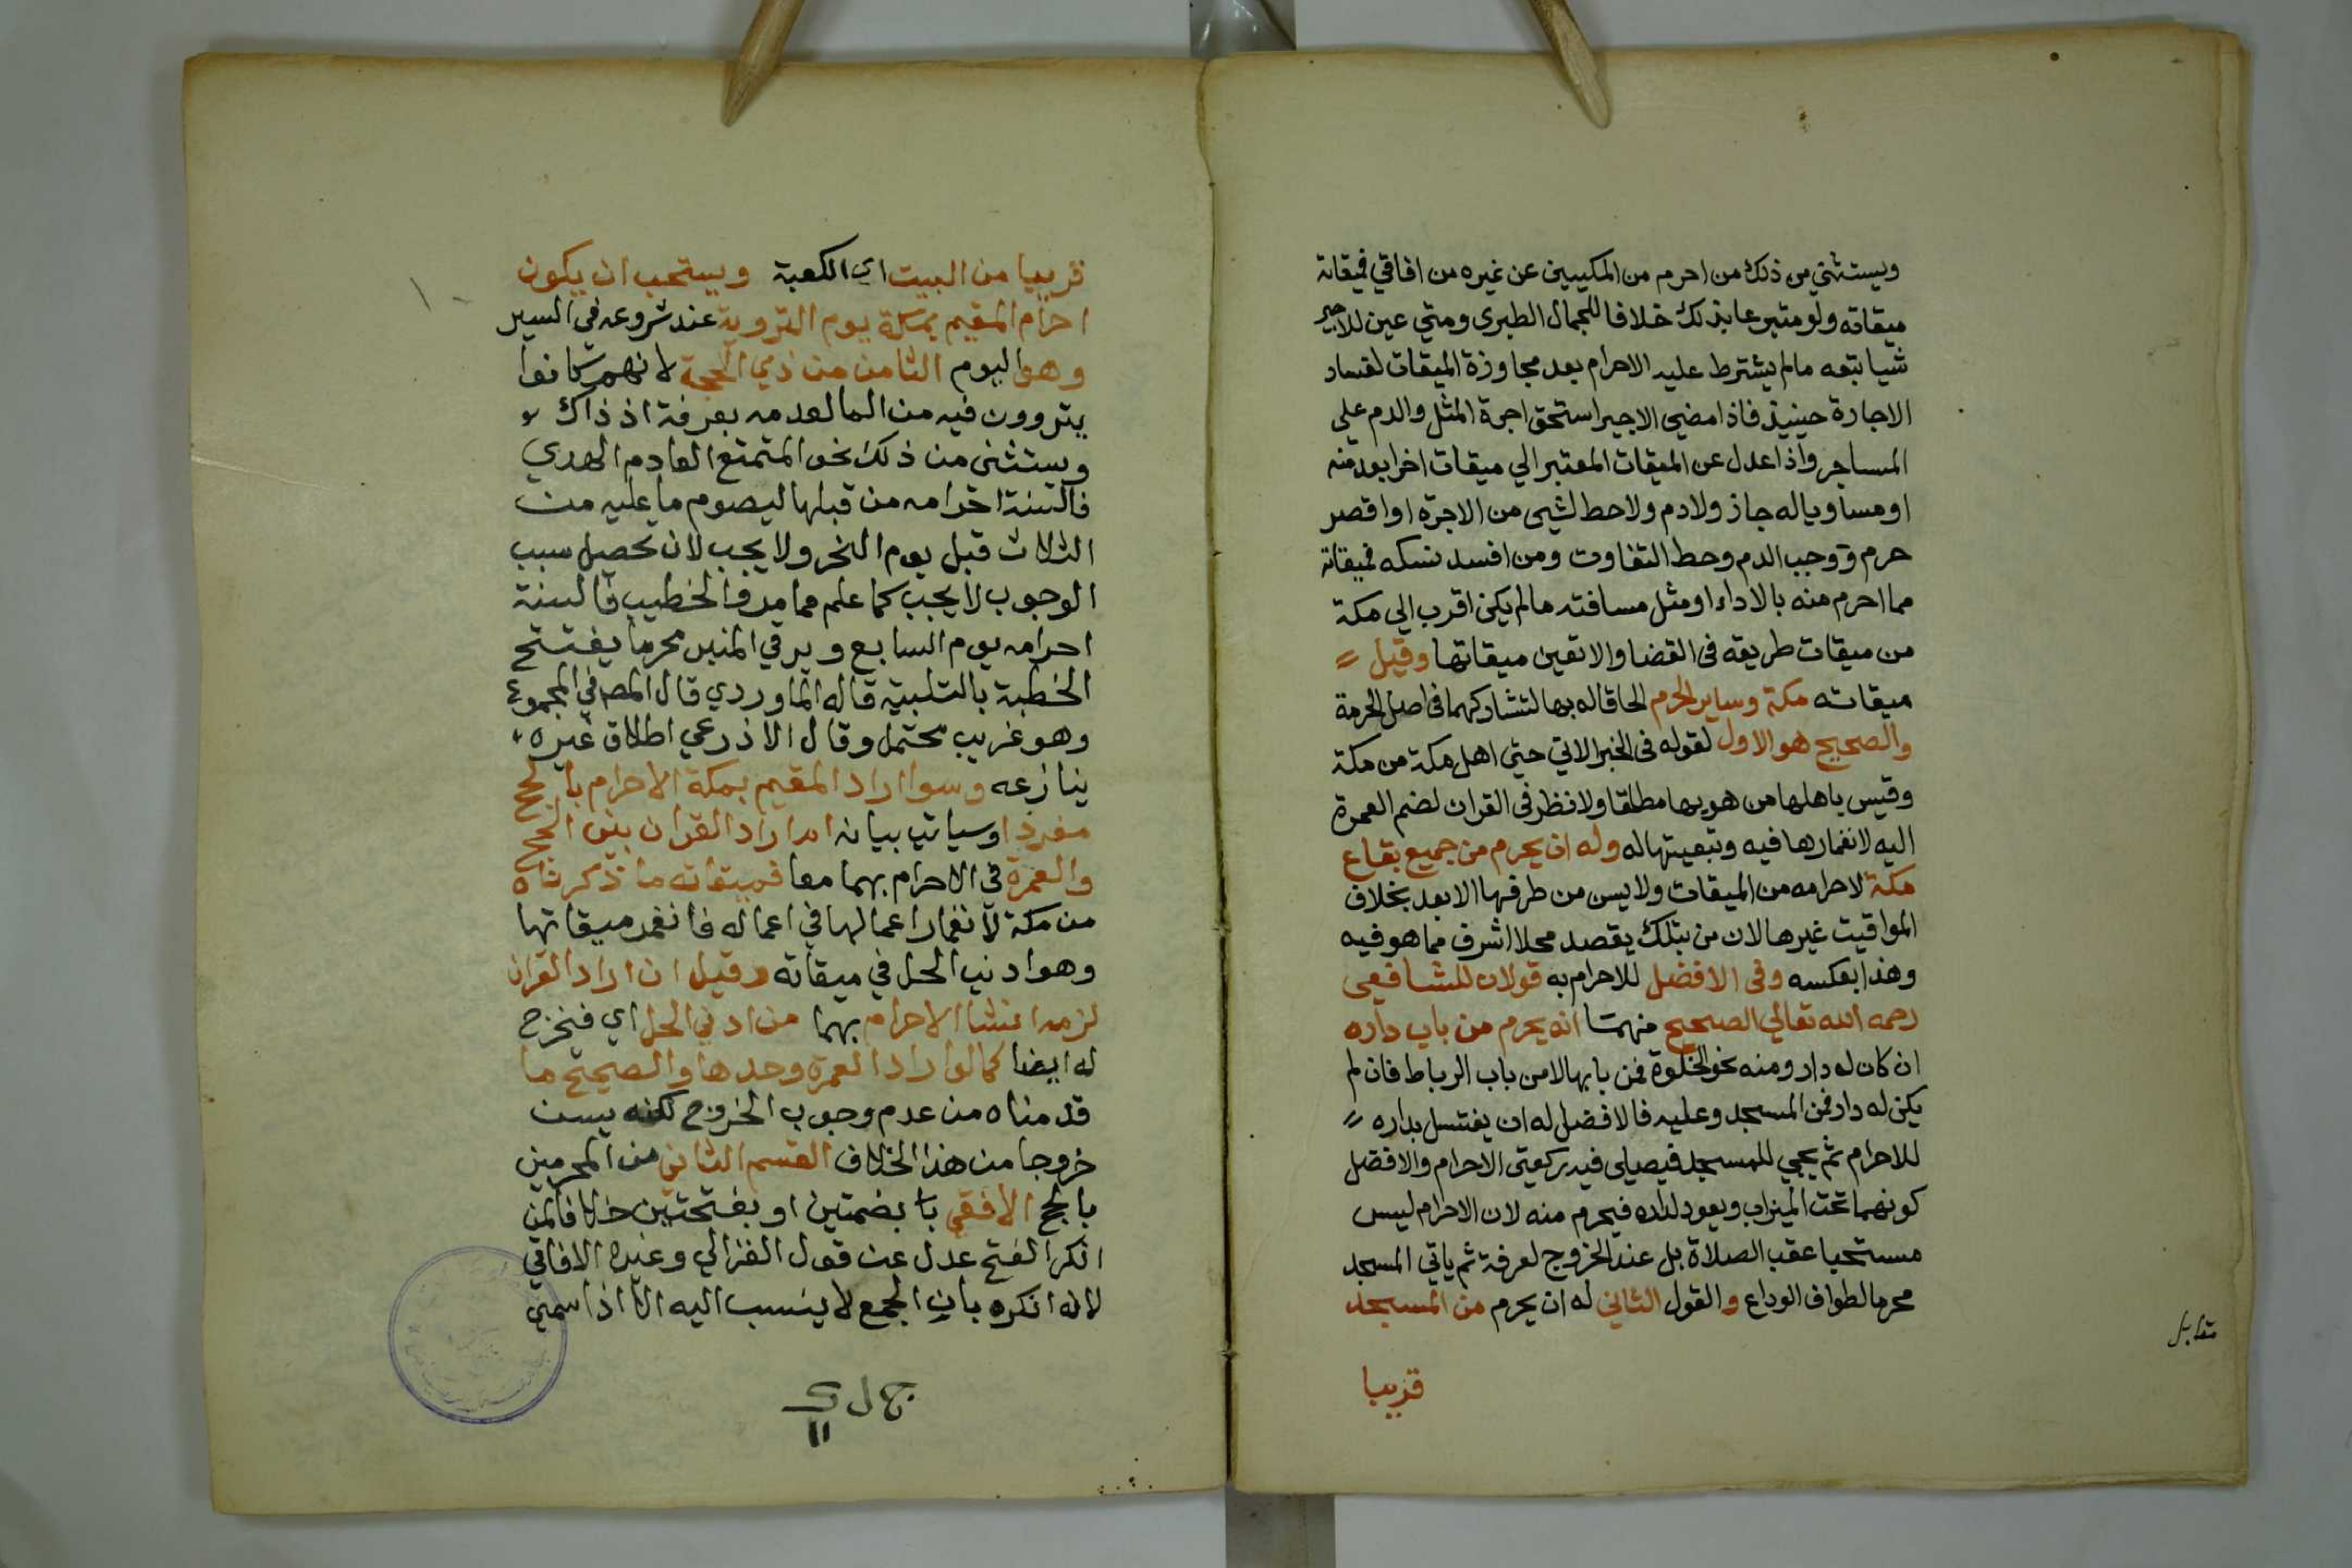 ويستثني من ذلك من احرم من المكيين عن غيره من افاقي فميقاته
ميقاته ولو متبرعا بذلك خلافا للجمال الطبري ومتي عين للاجير
شيا تبعه مالم يشترط عليه الاحرام بعد مجاوزة الميقات لفساد
الاجارة حينيذ فاذا مضي الاجير استحق اجرة المثل والدم علي
المساجر واذا عدل عن الميقات المعتبر الي ميقات اخر ابعد منه
او مساويا له جاز ولا دم ولا حط لشيي من الاجرة او اقصر
حرم ووجب الدم وحط التفاوت ومن افسد نسكه فميقاته
مما احرم منه بالاداء او مثل مسافته مالم يكن اقرب الي مكة
من ميقات طريقه في القضا والا تعين ميقاتها وقيل
ميقاته مكة وساير الحرم الحاقا له بها لتشاركهما في اصل الحرمة
والصحيح هو الاول لقوله في الخبر الاتي حتي اهل مكة من مكة
وقيس باهلها من هو بها مطلقا ولا نظر في القران لضم العمرة
اليه لانغمارها فيه وتبعيتها له وله ان يحرم من جميع بقاع
مكة لاحرامه من الميقات ولا يسن من طرفها الابعد بخلاف
المواقيت غيرها لان من بتلك يقصد محلا اشرف مما هو فيه
وهذا بعكسه وفي الافضل للاحرام به قولان للشافعي
رحمه الله تعالي الصحيح منهما انه يحرم من باب داره
ان كان له دار ومنه نحو الخلوة فمن بابها لا من باب الرباط فان لم
يكن له دار فمن المسجد وعليه فالافضل له ان يغتسل بداره
للاحرام ثم يجي للمسجد فيصلي فيه ركعتي الاحرام والافضل
كونهما تحت الميزاب ويعود لداره فيحرم منه لان الاحرام ليس
مستحبا عقب الصلاة بل عند الخروج لعرفة ثم ياتي المسجد
محرما لطواف الوداع والقول الثاني له ان يحرم من المسجد
قريبا
مقابل
قريبا من البيت اي الكعبة ويستحب ان يكون
احرام المقيم بمكة يوم التروية عند شروعه في السير
وهو اليوم الثامن من ذي الحجة لانهم كانوا
يتروون فيه من الما لعدمه بعرفة اذ ذاك
ويستثنى من ذلك نحو المتمتع العادم الهدي
فالسنة احرامه من قبلها ليصوم ما عليه من
الثلاث قبل يوم النحر ولا يجب لان تحصيل سبب
الوجوب لا يجب كما علم مما مر والخطيب فالسنة
احرامه يوم السابع ويرقي المنبر محرما يفتتح
الخطبة بالتلبية قاله الماوردي قال المص في المجموع
وهو غريب محتمل وقال الاذرعي اطلاق غيره
ينازعه وسوا اراد المقيم بمكة الاحرام بالحج
مفردا وسياتي بيانه ام اراد القران بين الحج
والعمرة في الاحرام بهما معا فميقاته ما ذكرناه
من مكة لانغمار اعمالها في اعماله فانغمر ميقاتها
وهو ادني الحل في ميقاته وقيل ان اراد القران
لزمه انشا الاحرام بهما من ادني الحل اي فيخرج
له ايضا كما لو اراد العمرة وحدها والصحيح ما
قدمناه من عدم وجوب الخروج لكنه يسن
خروجا من هذا الخلاف القسم الثاني من المحرمين
بالحج الافقي بضمتين او بفتحتين خلافا لمن
انكر الفتح عدل عن قول الغزالي وغيره الافاقي
لانه انكره بان الجمع لا ينسب اليه الا اذا سمي